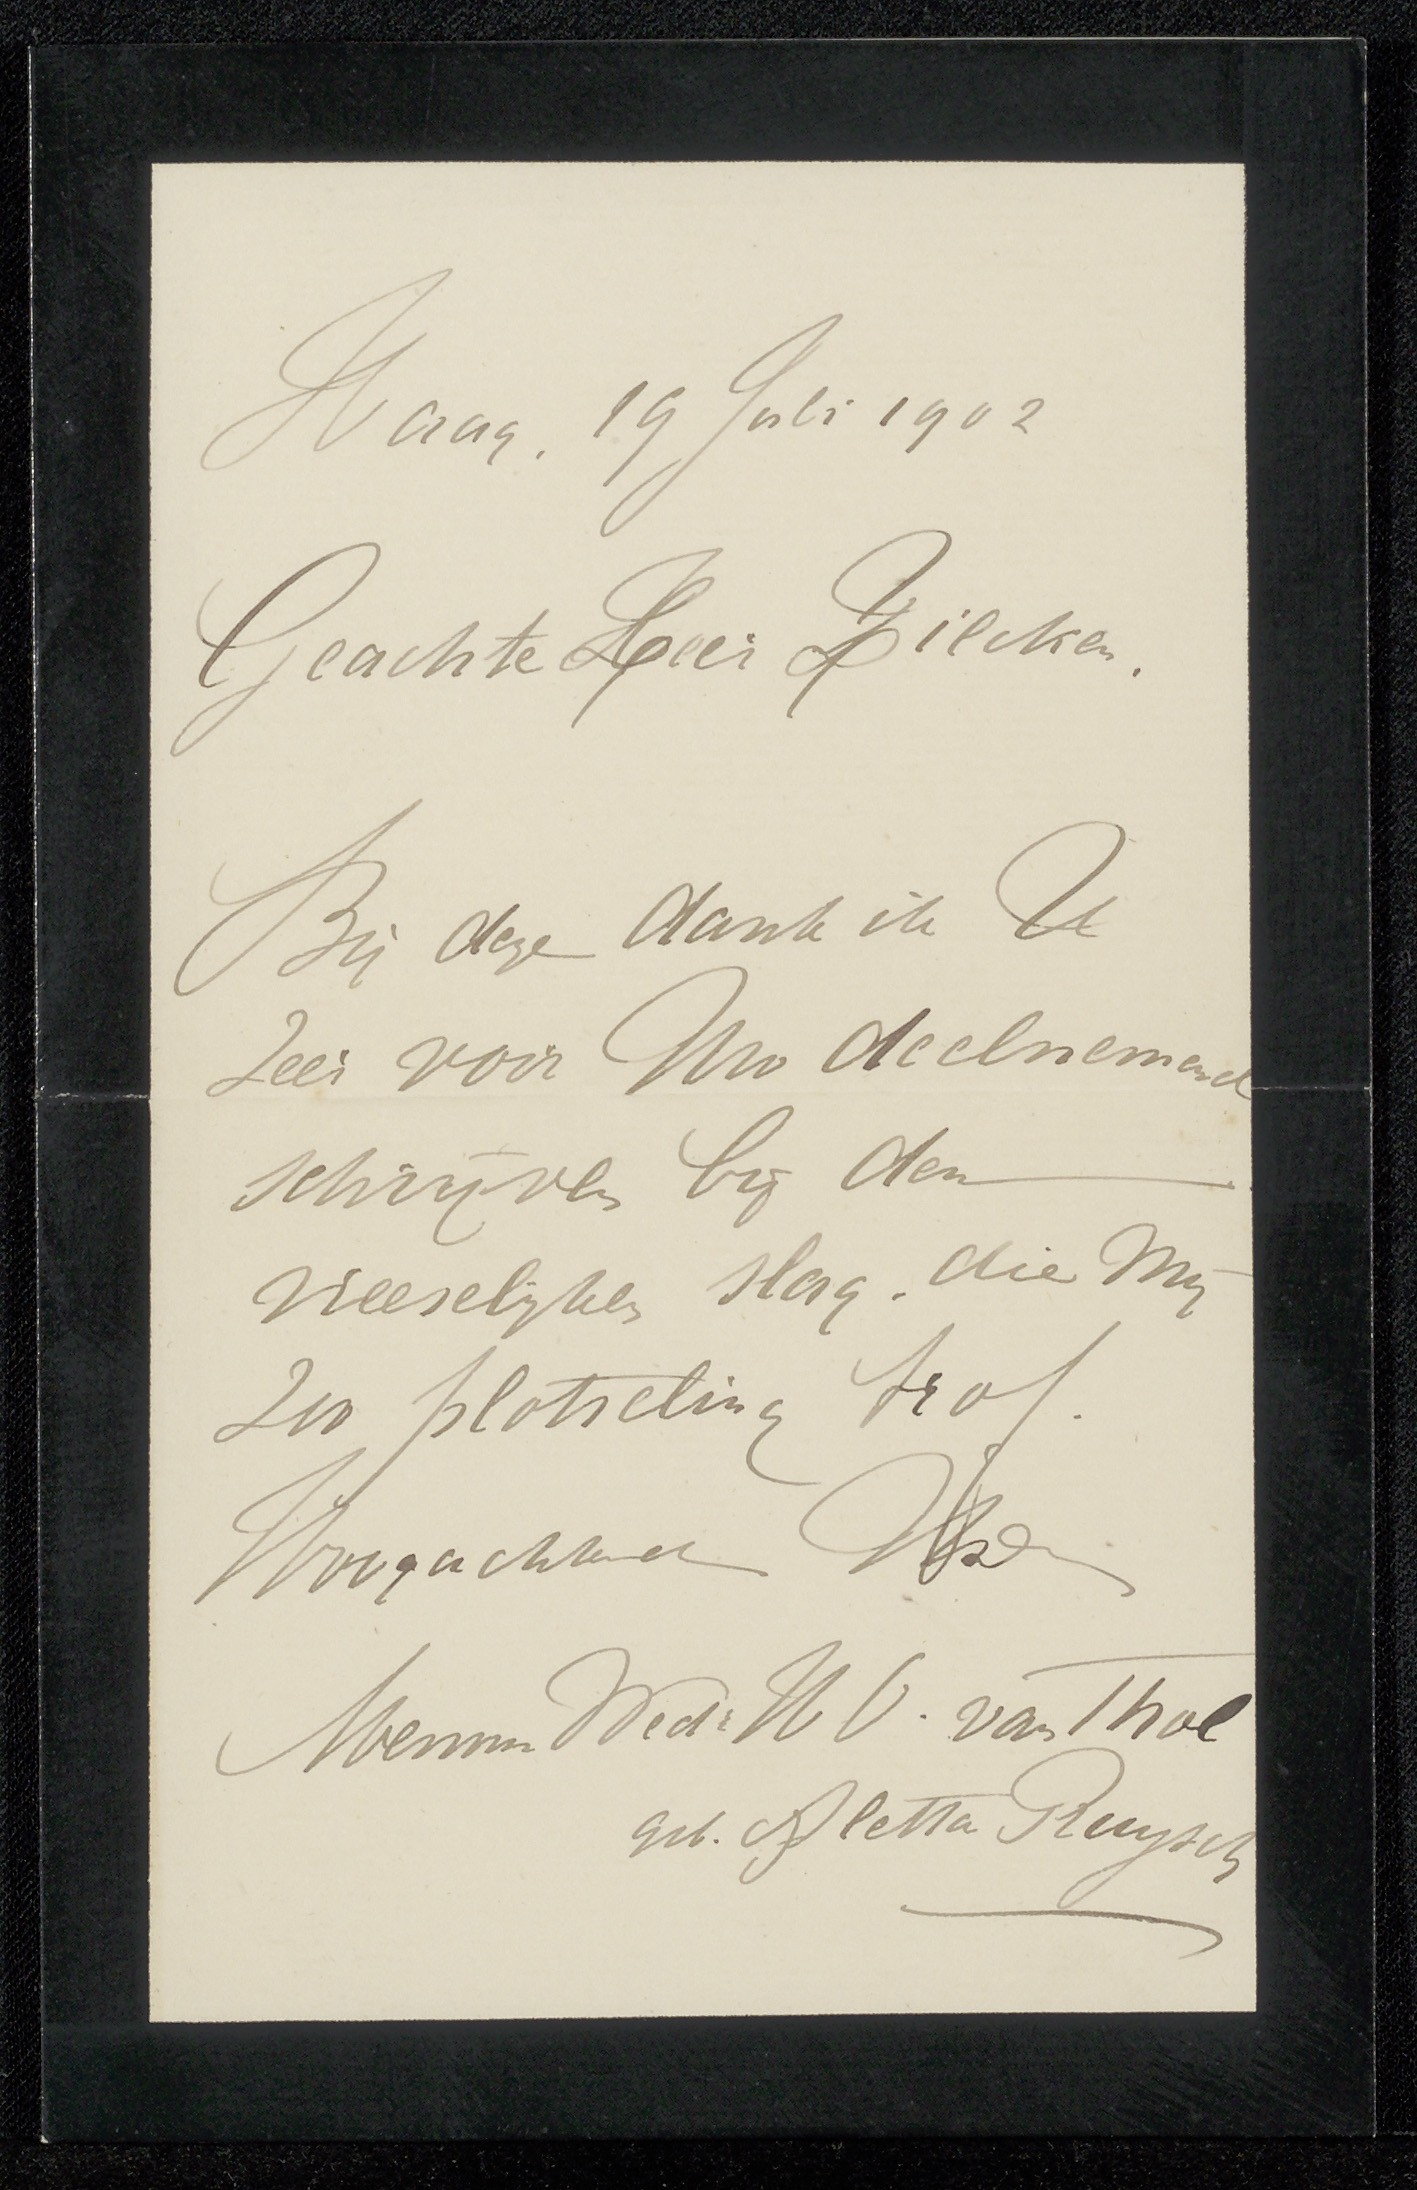 Haag. 19 Juli 1902
Geachte Heer Zilcken.
Bij deze dank ik U
zeer voor Uw deelnemend
schrijven bij den
vreeselijken slag. die mij
zoo plotseling trof.
Hoogachtend
Mevrouw Wed: H O. van Thol
geb. Aletta Ruysch